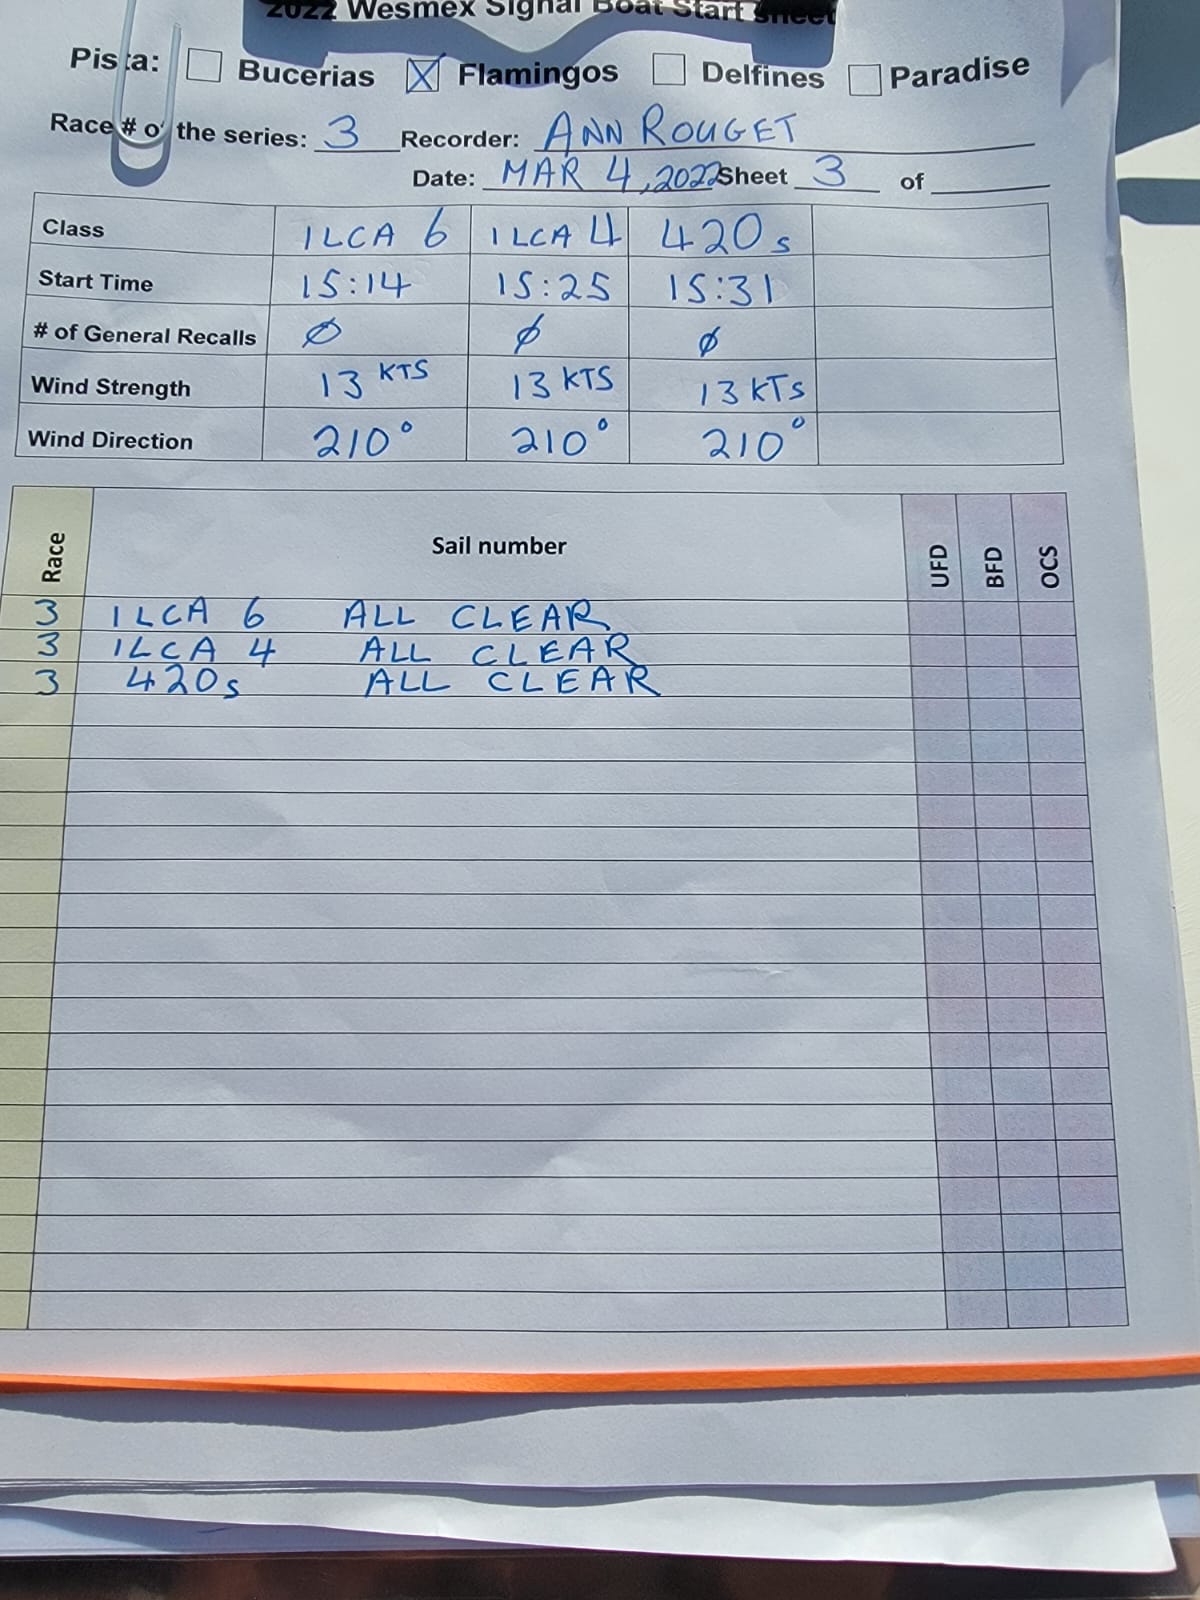 2022 Wesmex Signal Boat Start Sheet
Pista: Bucerias X Flamingos Delfines Paradise
Race # of the series: 3 Recorder: ANN ROUGET
Date: MAR 4, 2022 Sheet 3 of
Class ILCA 6 ILCA 4 420s
Start Time 15:14 15:25 15:31
# of General Recalls Ø Ø Ø
Wind Strength 13 KTS 13 KTS 13 KTs
Wind Direction 210° 210° 210°
Race Sail number UFD BFD OCS
3 ILCA 6 ALL CLEAR
3 ILCA 4 ALL CLEAR
3 420s ALL CLEAR